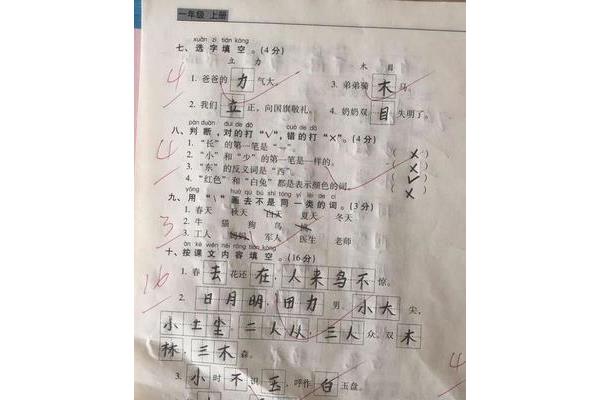 一年级 上册
xuǎn zì tián kòng
七、选字填空。(4分)
立 力 木 目
4
1. 爸爸的力气大。 3. 弟弟骑木马。
2. 我们立正，向国旗敬礼。 4. 奶奶双目失明了。
pàn duàn duì de dǎ cuò de dǎ
八、判断，对的打“√”，错的打“×”。(4分)
4
1. “长”的第一笔是“一”。 (×)
2. “小”和“少”的第一笔是一样的。 (×)
3. “东”的反义词是“西”。 (√)
4. “红色”和“白兔”都是表示颜色的词。 (×)
yòng huà qù bú shì tóng yí lèi de cí
九、用“\”画去不是同一类的词。(3分)
1. 春天 秋天 白天 夏天 冬天
2. 牛 猫 狗 鸟
3
3. 工人 妈妈 军人 医生 老师
àn kè wén nèi róng tián kòng
十、按课文内容填空。(16分)
16
1. 春去花还在，人来鸟不惊。
2. 日月明，田力男。小大尖，
小土尘。二人从，三人众，双木
林，三木森。
4
3. 小时不识玉，呼作白玉盘。